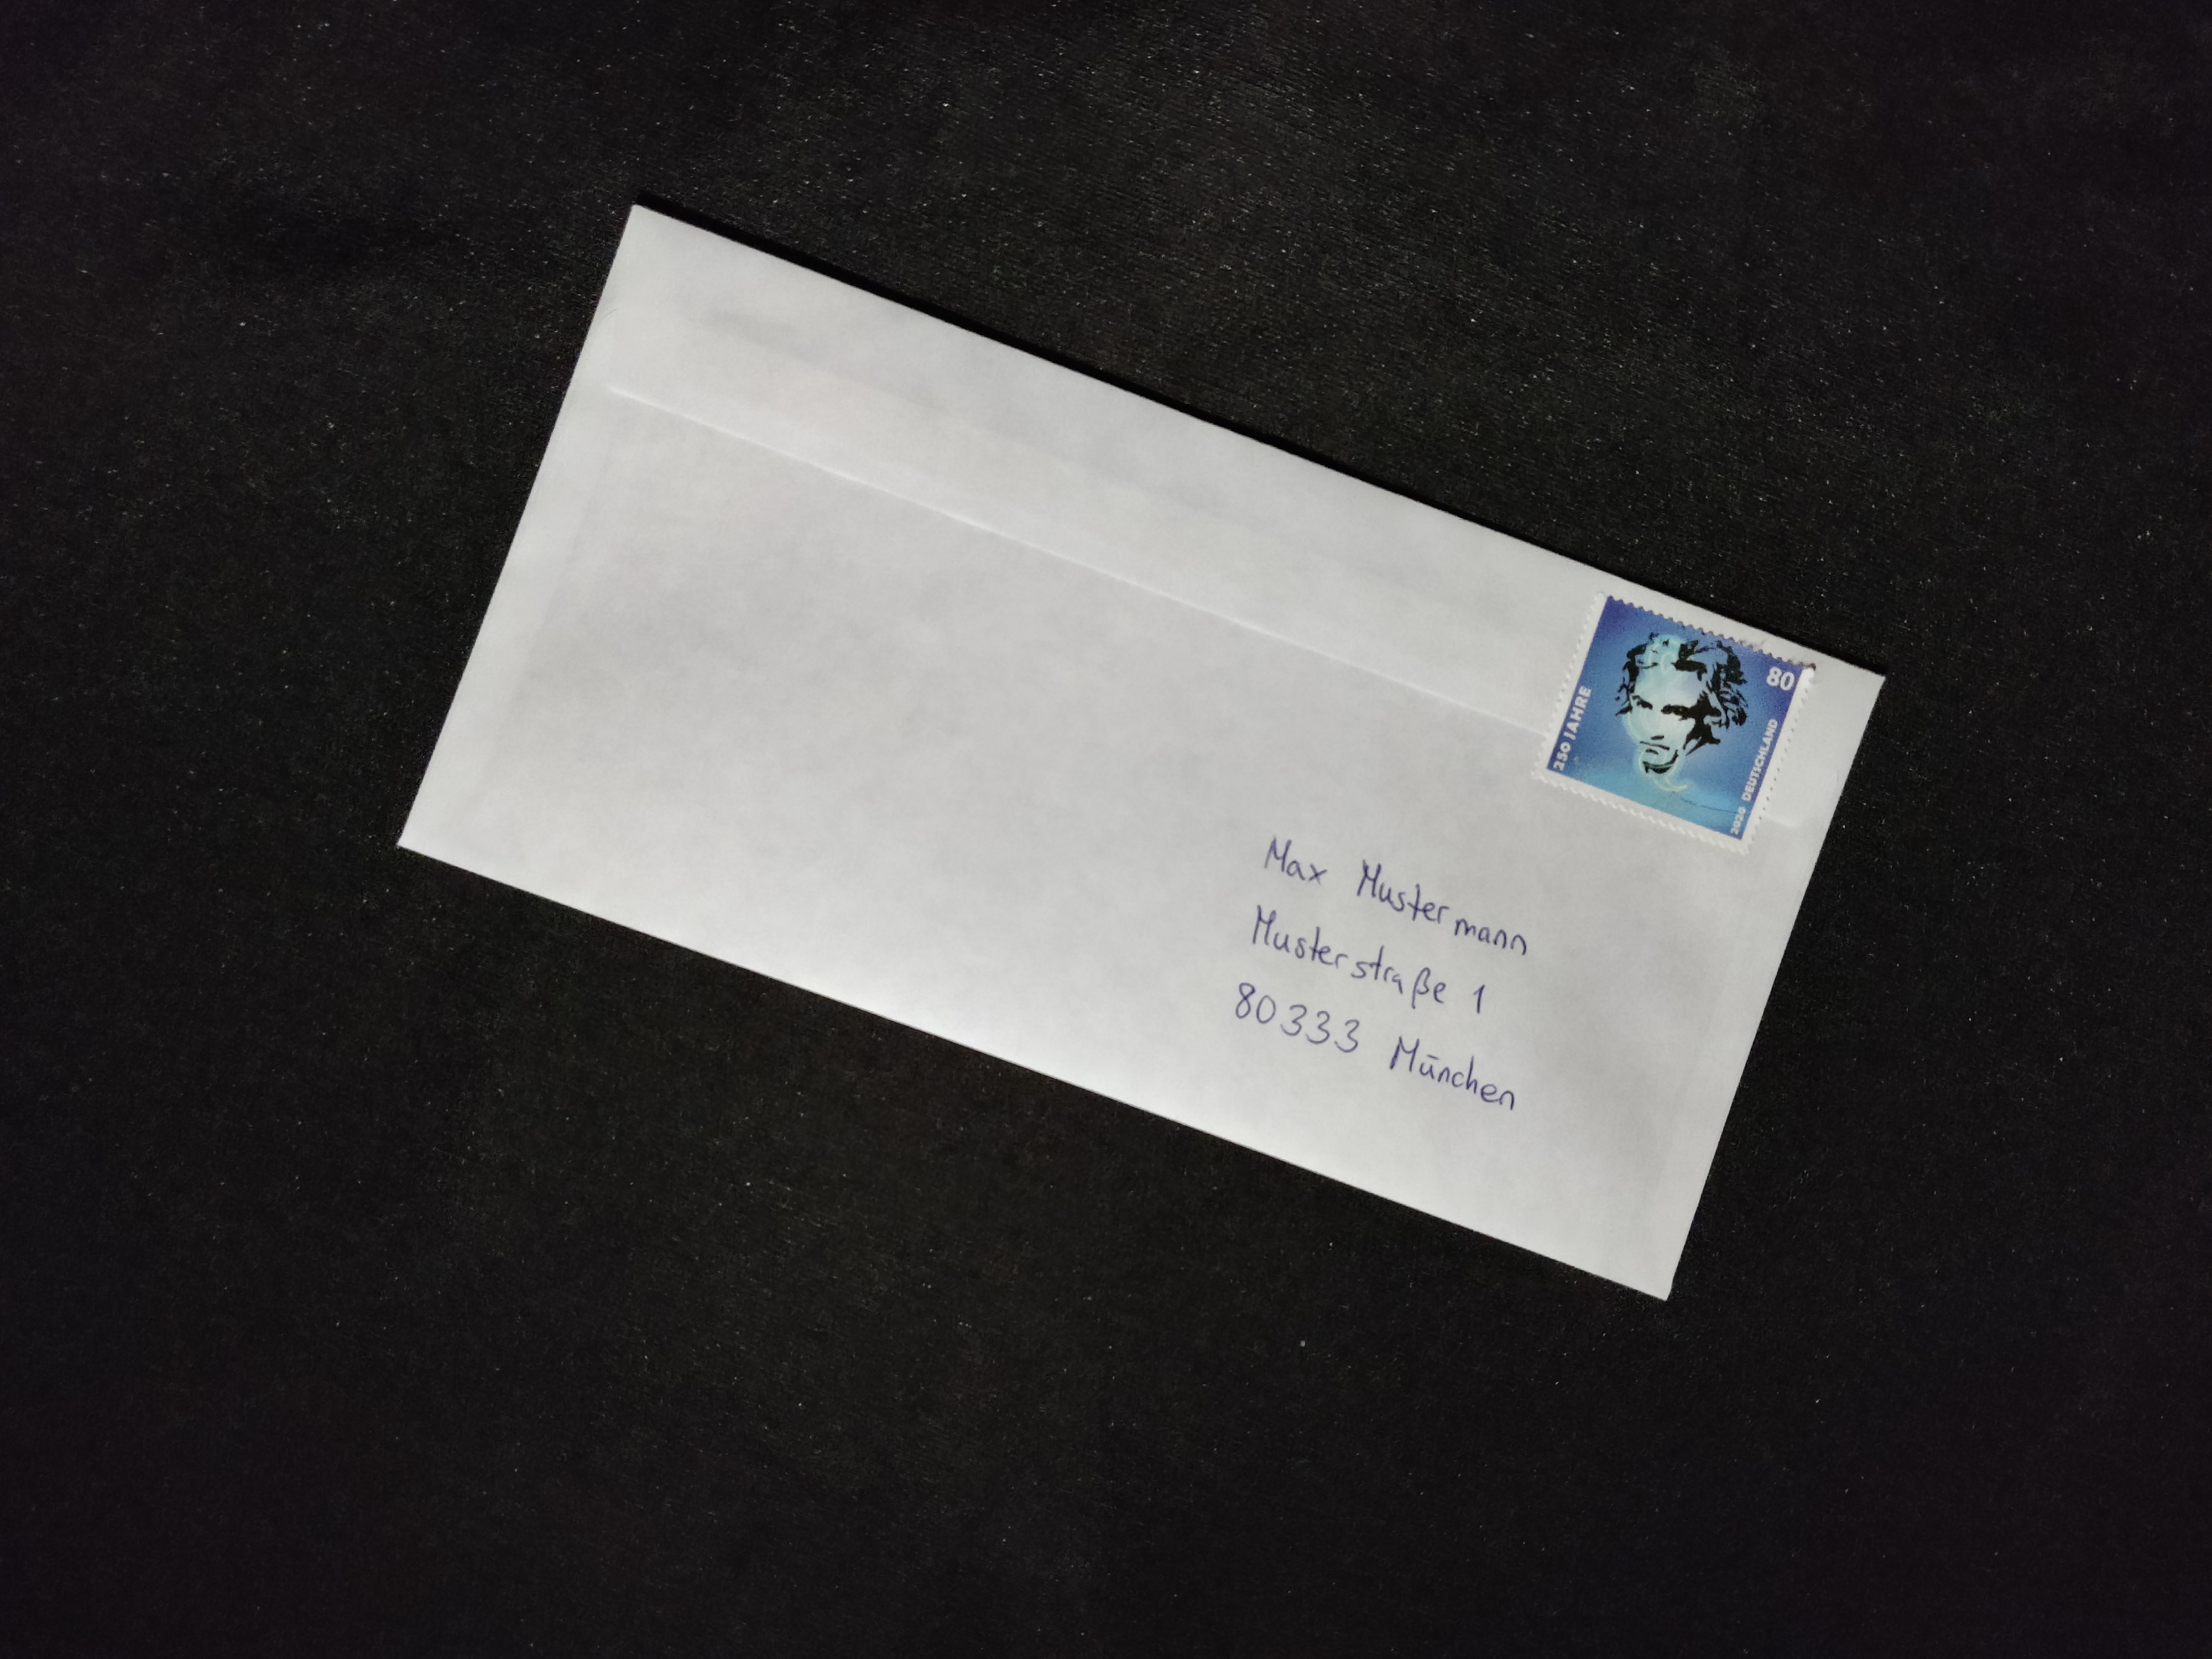 250 JAHRE
80
2020 DEUTSCHLAND
Max Mustermann
Musterstraße 1
80333 München